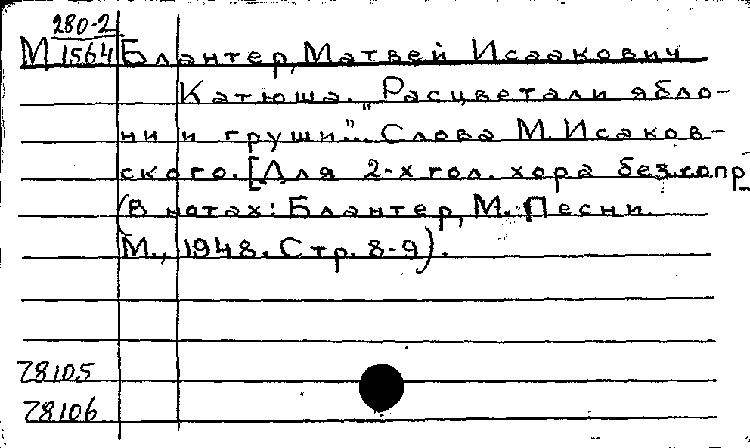 280-2
М 1564 Блантер, Матвей Исаакович
Катюша. "Расцветали ябло-
ни и груши"... Слова М. Исаков-
ского. [Для 2-х гол. хора без сопр
(В нотах: Блантер, М. Песни.
М., 1948. Стр. 8-9).
78105
78106